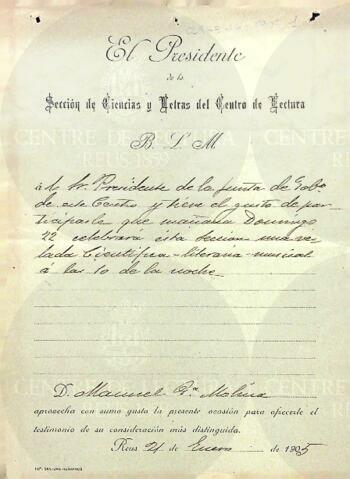 El Presidente
de la
Sección de Ciencias y Letras del Centro de Lectura
B. L. M
al Sr. Presidente de la Junta de Gobº
de este Centro y tiene el gusto de par-
ticiparle que mañana Domingo
22 celebrará esta Sección una ve-
lada Científica-literaria-musical
á las 10 de la noche
D. Manuel Gª Molina
aprovecha con sumo gusto la presente ocasión para ofrecerle el
testimonio de su consideración más distinguida.
Reus 21 de Enero de 1905